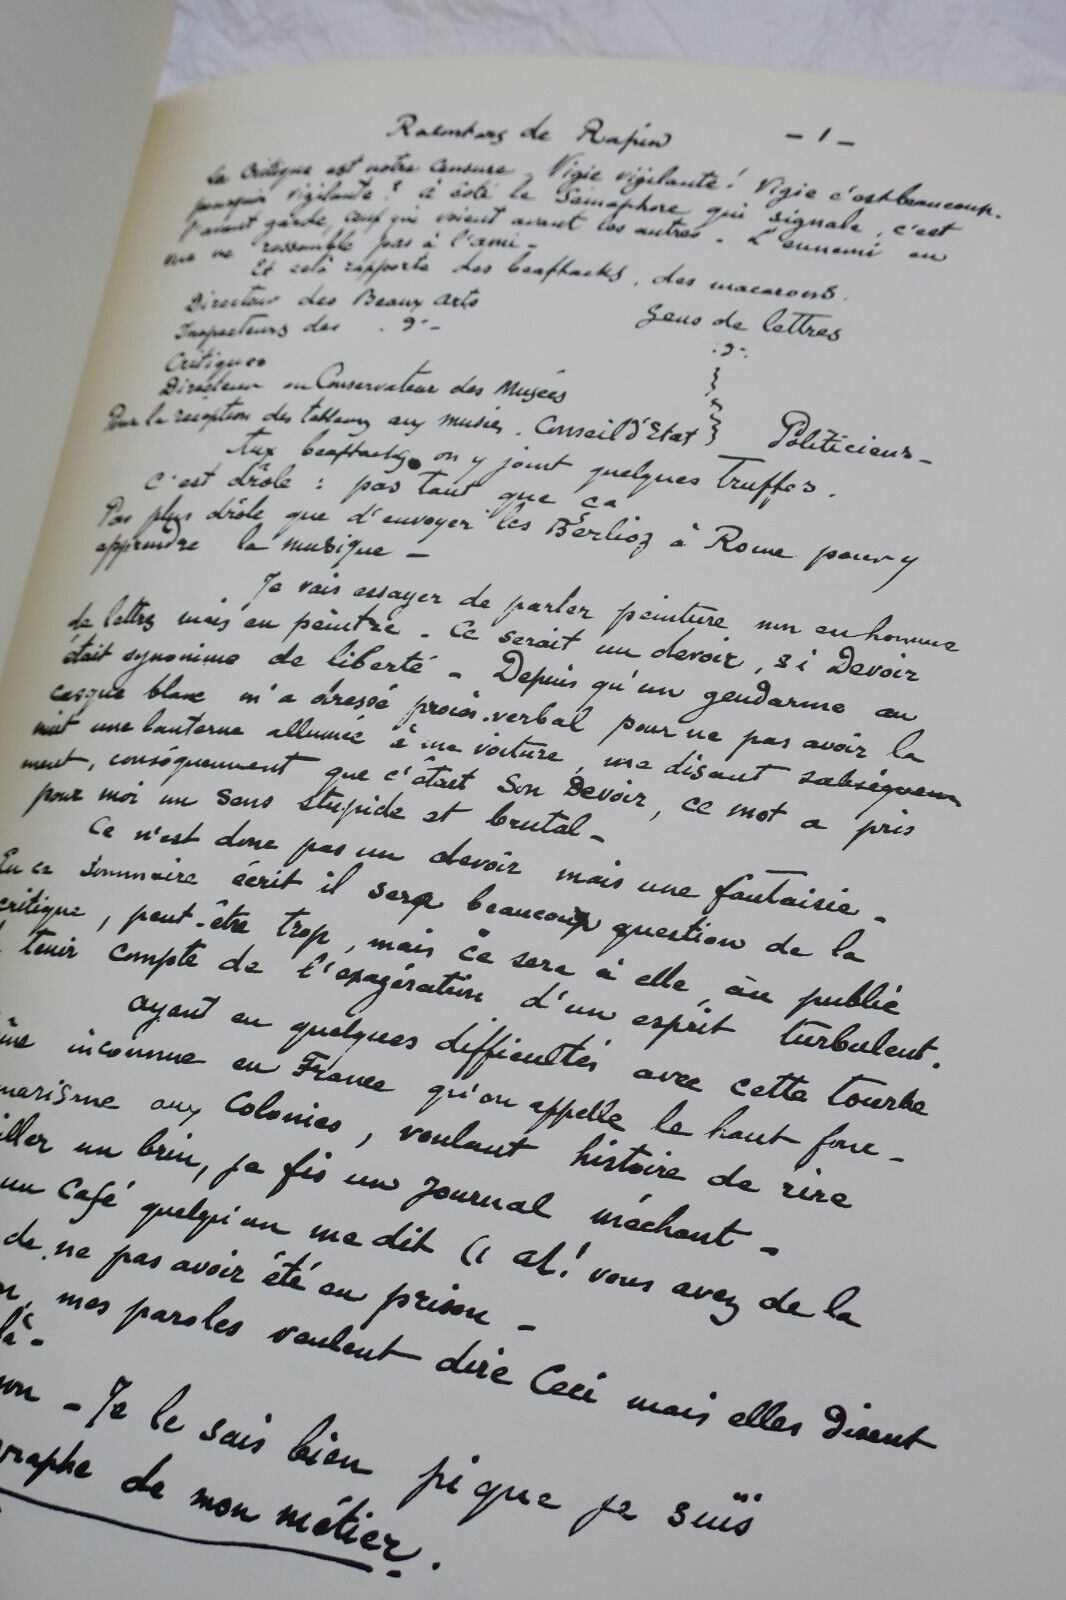 Racontars de Rapin - 1 -
La Critique est notre Censure - Vigie vigilante! Vigie c'est beaucoup.
pourquoi vigilante? à côté le Sémaphore qui signale, c'est
l'avant garde, ceux qui voient avant les autres - L'ennemi en
vue ne ressemble pas à l'ami -
Et celà rapporte des beaftacks, des macarons.
Directeur des Beaux Arts Gens de lettres
Inspecteurs des . 9 - . 9 - .
Critiques
Directeur ou Conservateur des Musées
Pour la réception des tableaux aux musées. Conseil D'Etat } Politiciens -
Aux beaftacks on y joint quelques truffes.
C'est drôle : pas tant que ça
Pas plus drôle que d'envoyer les Berlioz à Rome pour y
apprendre la musique -
Je vais essayer de parler peinture non en homme
de lettres mais en peintre - Ce serait un devoir, si Devoir
était synonime de liberté - Depuis qu'un gendarme au
casque blanc m'a dressé procès-verbal pour ne pas avoir la
nuit une lanterne allumée à ma voiture, me disant subséquem
ment, conséquemment que c'était Son Devoir, ce mot a pris
pour moi un sens stupide et brutal -
Ce n'est donc pas un devoir mais une fantaisie -
En ce sommaire écrit il sera beaucoup question de la
critique, peut-être trop, mais ce sera à elle, au public
tenir compte de l'exagération d'un esprit turbulent.
Ayant eu quelques difficultés avec cette tourbe
inconnue en France qu'on appelle le haut fonc -
narisme aux Colonies, voulant histoire de rire
iller un brin, je fis un Journal méchant -
un Café quelqu'un me dit (( ah! vous avez de la
de ne pas avoir été en prison -
n, mes paroles veulent dire Ceci mais elles Disent
là -
non - Je le sais bien pi que je suis
graphe de mon métier.